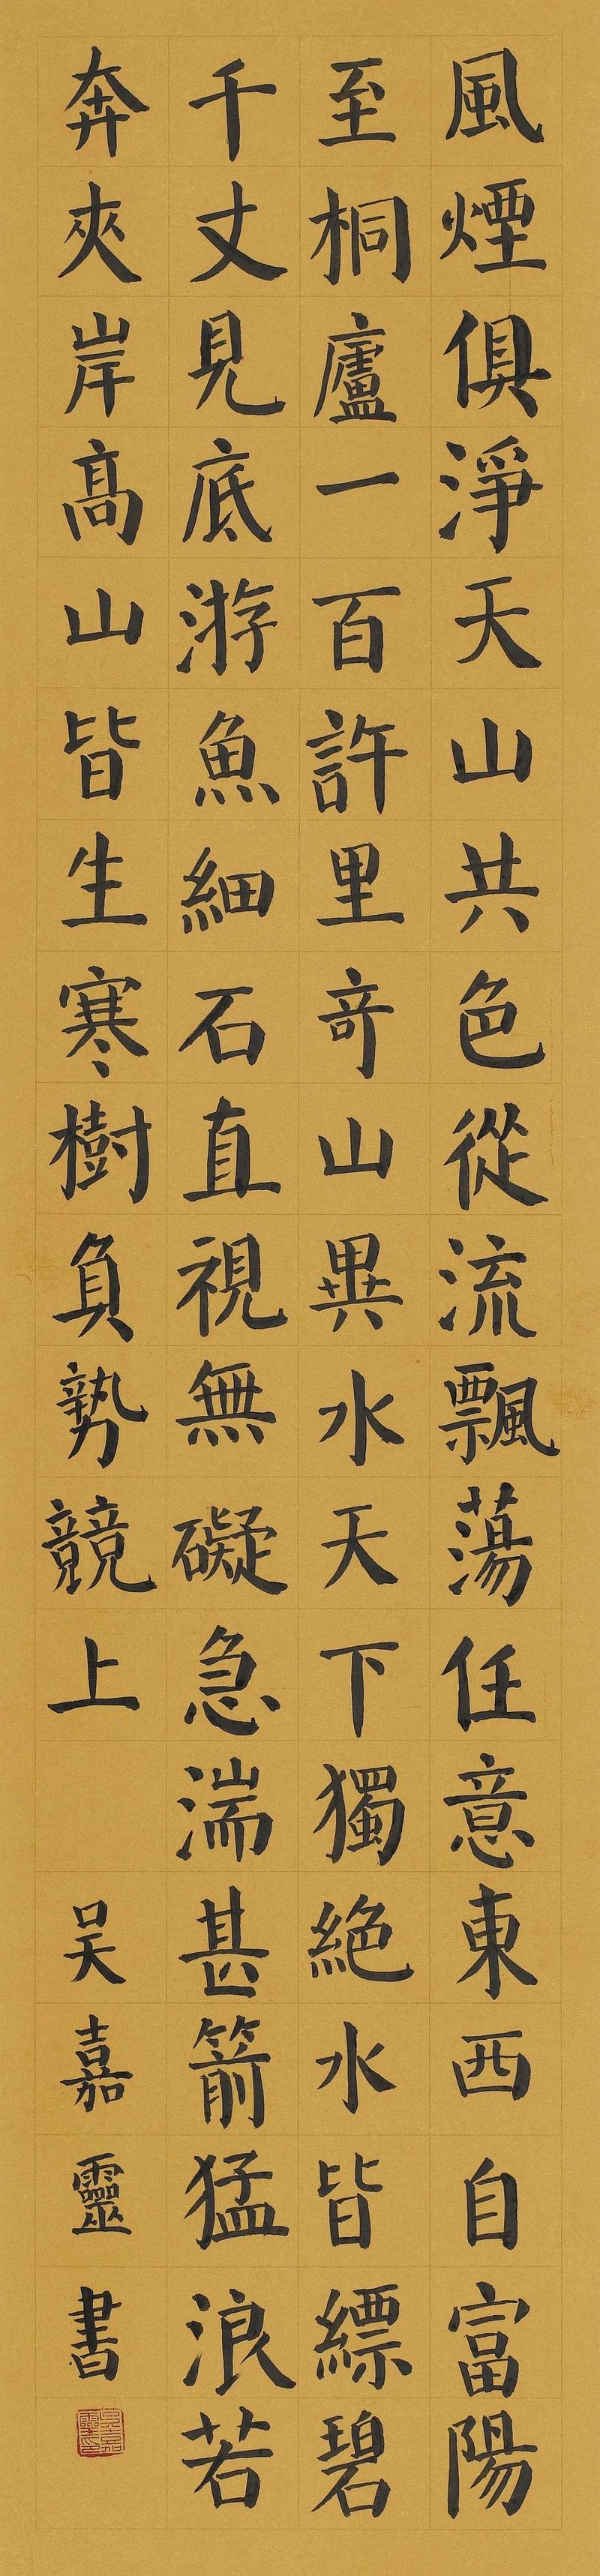 風煙俱淨天山共色從流飄蕩任意東西自富陽
至桐廬一百許里奇山異水天下獨絕水皆縹碧
千丈見底游魚細石直視無礙急湍甚箭猛浪若
奔夾岸高山皆生寒樹負勢競上
吴嘉靈書